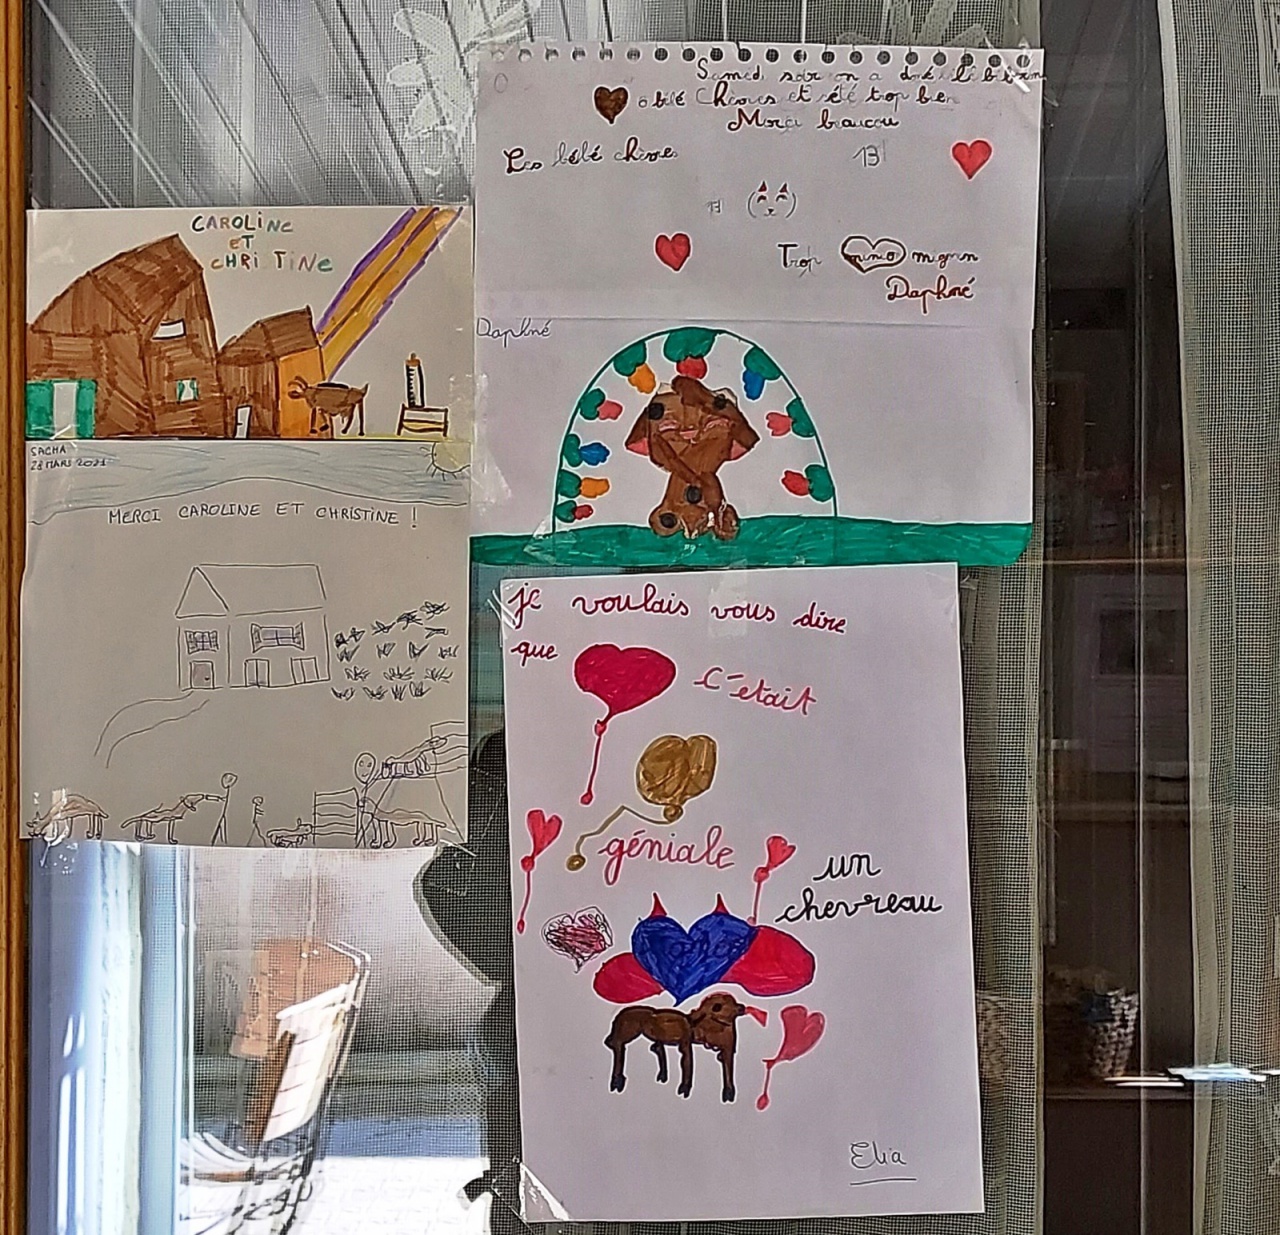 CAROLINE
ET
CHRI TINE
SACHA
28 MARS 2021
MERCI CAROLINE ET CHRISTINE !
Samedi soir on a
Chèvres et été trop bien
Merci beaucou
Les bébé chèvres
13
Trop mignon
Daphné
Daphné
je voulais vous dire
que
c'était
géniale
un
chevreau
Elia